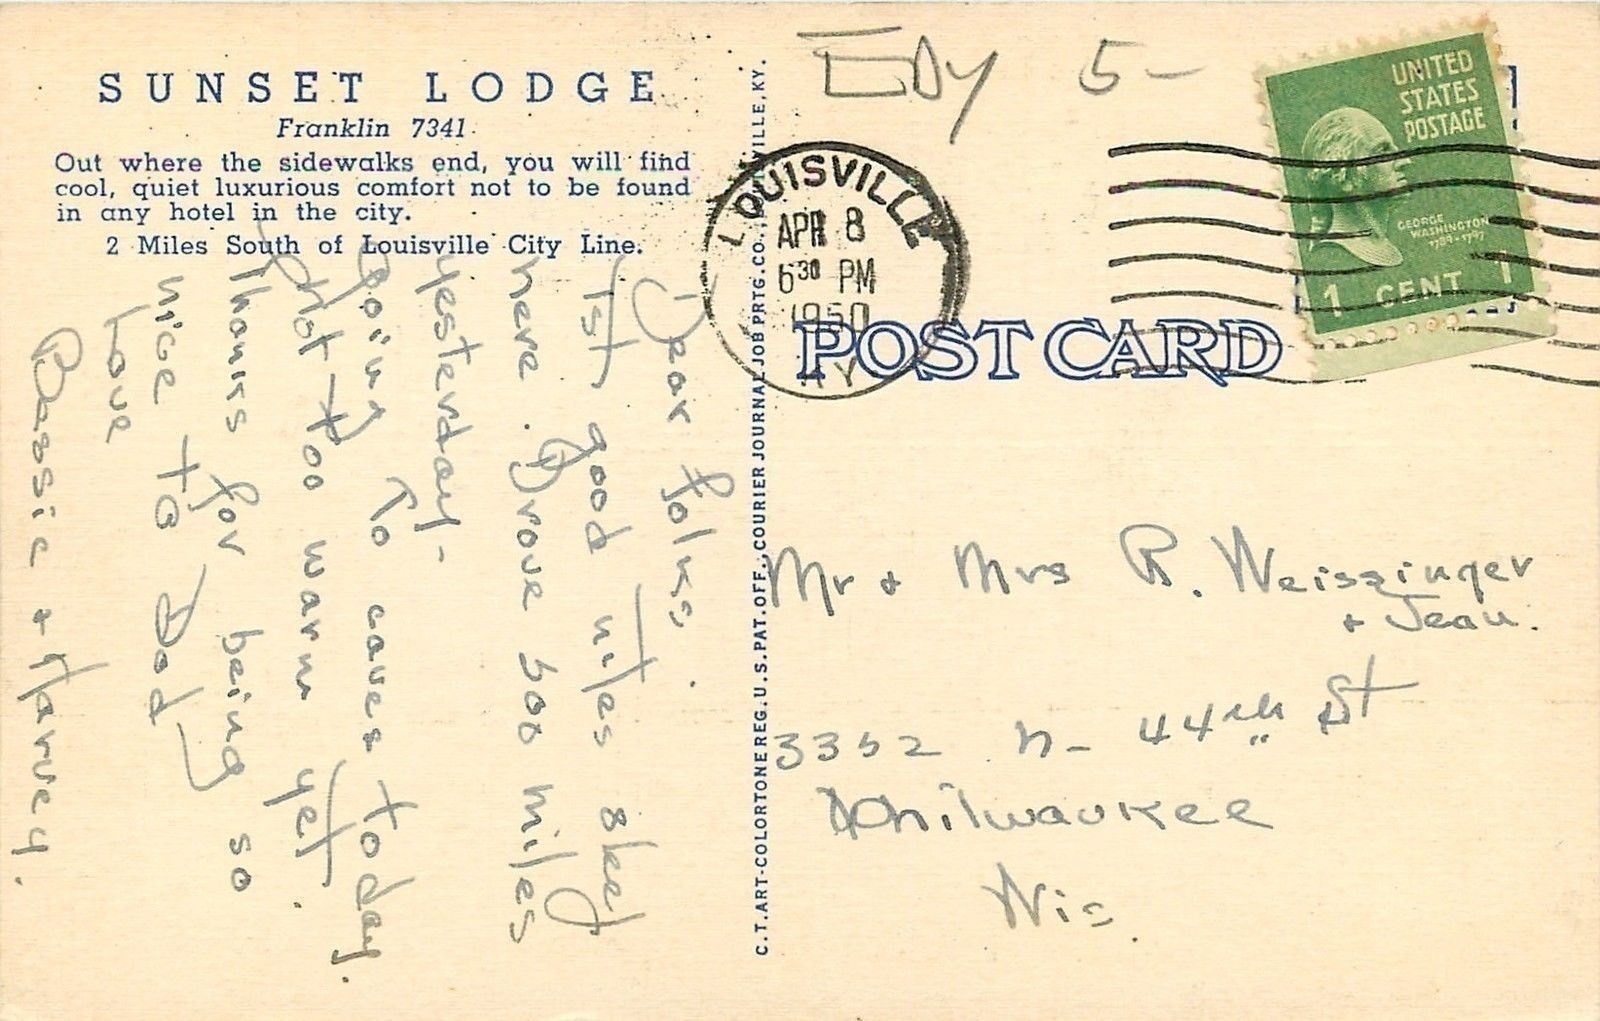 SUNSET LODGE
Franklin 7341
Out where the sidewalks end, you will find
cool, quiet luxurious comfort not to be found
in any hotel in the city.
2 Miles South of Louisville City Line.
Dear folks.
1st good nites sleep
here. Drove 600 miles
yesterday-
going to caves today.
Not too warm yet.
Thanks for being so
nice to Dad
Love
Bessie & Harvey.
C.T. ART-COLORTONE REG. U.S. PAT. OFF., COURIER JOURNAL JOB PRTG. CO., LOUISVILLE, KY.
5-
LOUISVILLE
APR 8
6 30 PM
1950
KY
UNITED
STATES
POSTAGE
GEORGE
WASHINGTON
1789-1797
1 CENT 1
POST CARD
Mr & Mrs R. Weiszinger
& Jean.
3352 N- 44th St
Milwaukee
Wis.